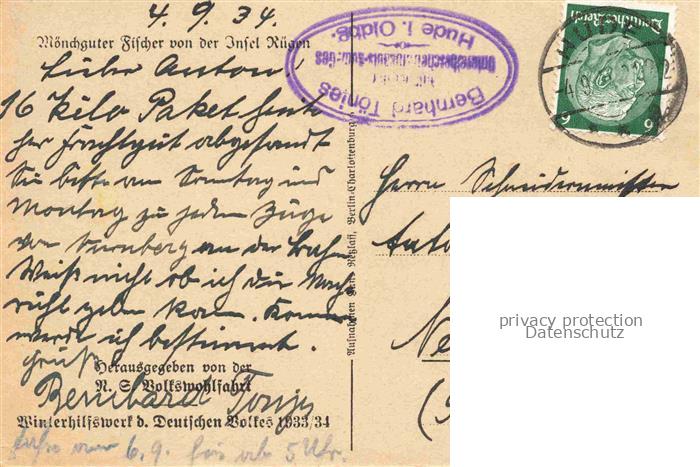 4. 9. 34.
Mönchguter Fischer von der Insel Rügen
Lieber Anton!
16 Kilo Paket heute
per Frachtgut abgesandt
Sei bitte am Sonntag und
Montag zu jedem Zuge
von Nürnberg an der Bahn
Weiß nicht ob ich dir Nach-
richt geben kann. Kommen
werde ich bestimmt.
Gruß
Herausgegeben von der
N. S. Volkswohlfahrt
Bernhard Tönjes
Winterhilfswerk d. Deutschen Volkes 1933/34
6. 9. ab 5 Uhr.
Aufnahmen Hans Retzlaff, Berlin-Charlottenburg
Bernhard Tönjes
Hude i. Oldbg.
Deutsches Reich
6 6
HUDE
4.9.
Herrn Schneidermeister
Anto
Ne
privacy protection
Datenschutz